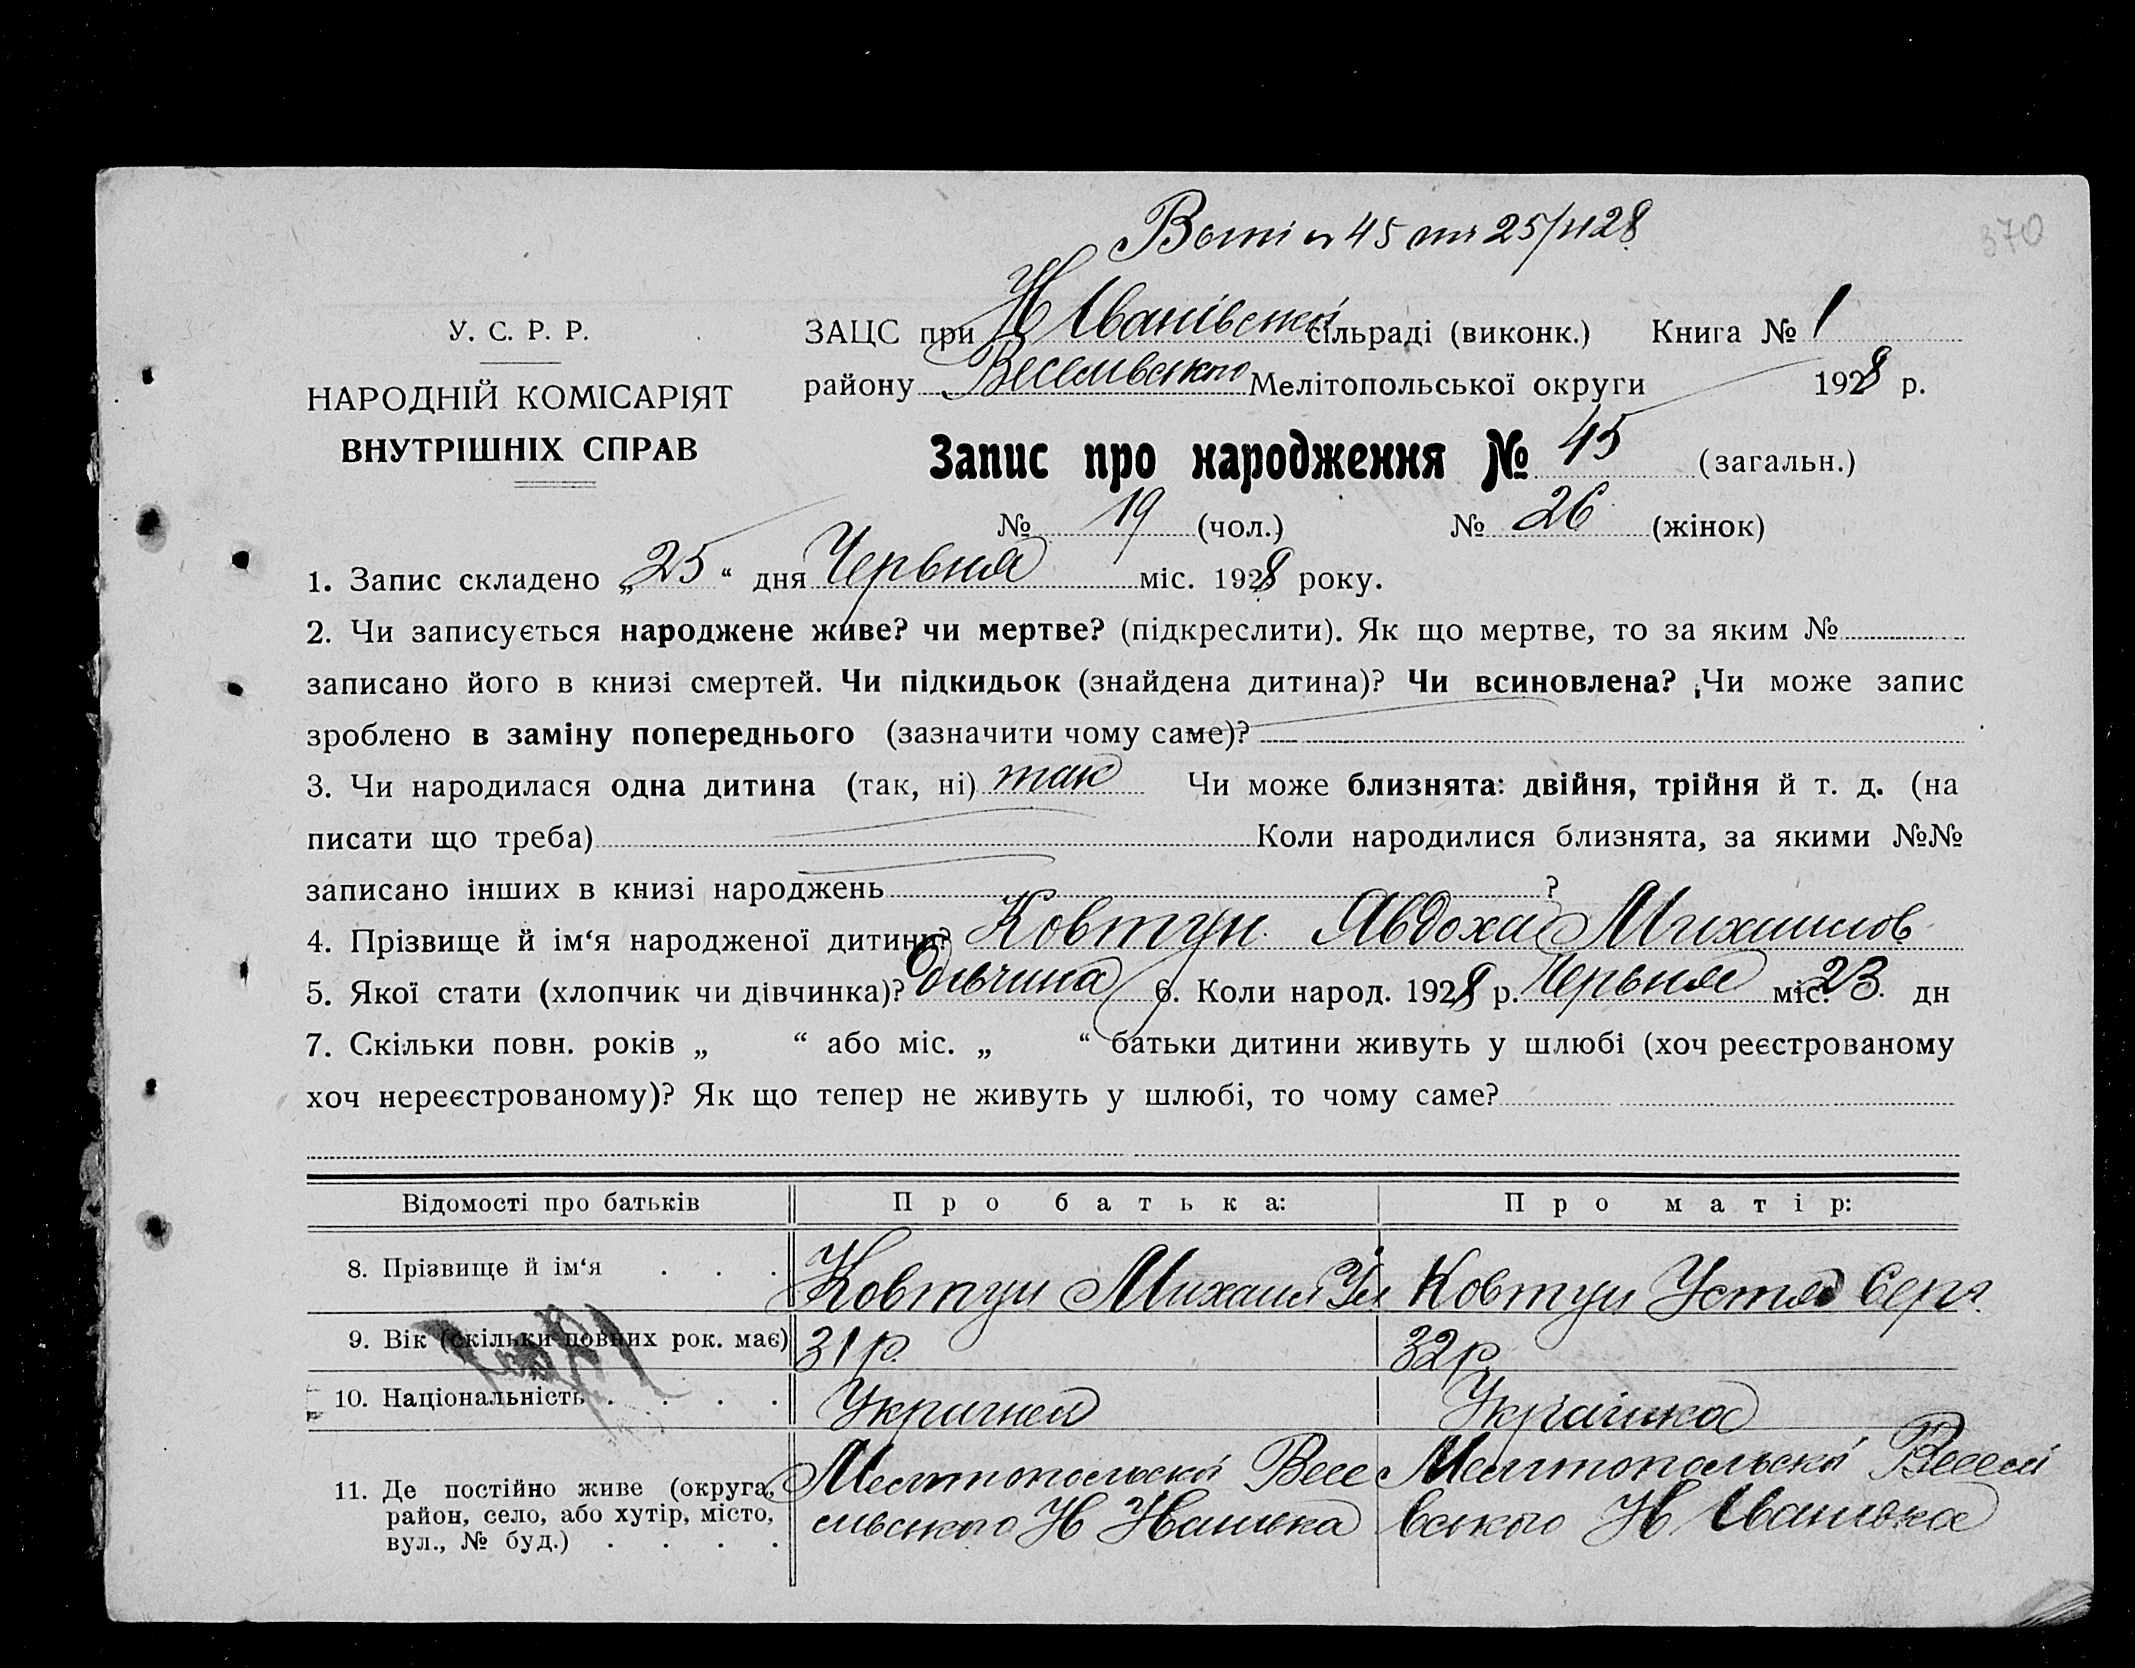 № 45 25/VI 28
370
У. С. Р. Р.
НАРОДНІЙ КОМІСАРІЯТ
ВНУТРІШНІХ СПРАВ
ЗАЦС при Н Іванівській сільраді (виконк.) Книга № 1
району Веселівського Мелітопольської округи 1928 р.
Запис про народження № 45 (загальн.)
№ 19 (чол.) № 26 (жінок)
1. Запис складено „25“ дня Червня міс. 1928 року.
2. Чи записується народжене живе? чи мертве? (підкреслити). Як що мертве, то за яким №
записано його в книзі смертей. Чи підкидьок (знайдена дитина)? Чи всиновлена? Чи може запис
зроблено в заміну попереднього (зазначити чому саме)?
3. Чи народилася одна дитина (так, ні) так Чи може близнята: двійня, трійня й т. д. (на
писати що треба) Коли народилися близнята, за якими №№
записано інших в книзі народжень ?
4. Прізвище й ім‘я народженої дитини? Ковтун Явдоха Михаилов
5. Якої стати (хлопчик чи дівчинка)? дівчина 6. Коли народ. 1928 р. Червня міс. 23. дн
7. Скільки повн. років „ “ або міс. „ “ батьки дитини живуть у шлюбі (хоч реєстрованому
хоч нереєстрованому)? Як що тепер не живуть у шлюбі, то чому саме?
Відомості про батьків Про батька: Про матір:
8. Прізвище й ім‘я . . . Ковтун Михаил Ковтун Устя Серг.
9. Вік (скільки повних рок. має) 31 р. 32 р.
10. Національність . . . . Украинец Українка
11. Де постійно живе (округа, район, село, або хутір, місто, вул., № буд.) . . . .
Мелітопольскої Весе
лівського Н Иванівка
Мелітопольскої Веселі
вського Н Іванівка